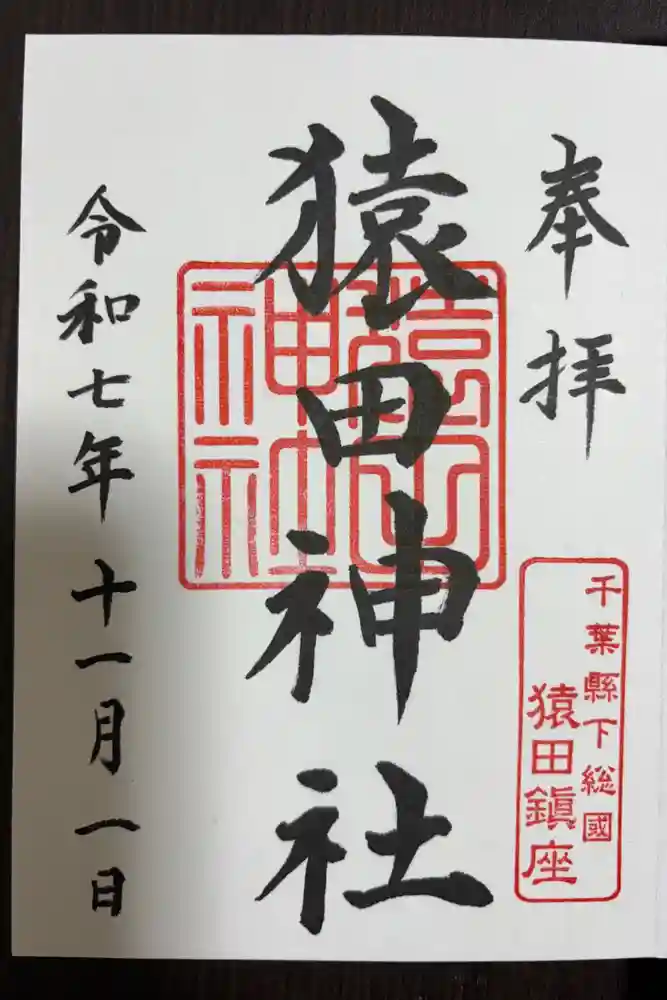 奉拝
千葉縣下総國
猿田鎮座
猿田神社
猿田
神社
令和七年十一月一日